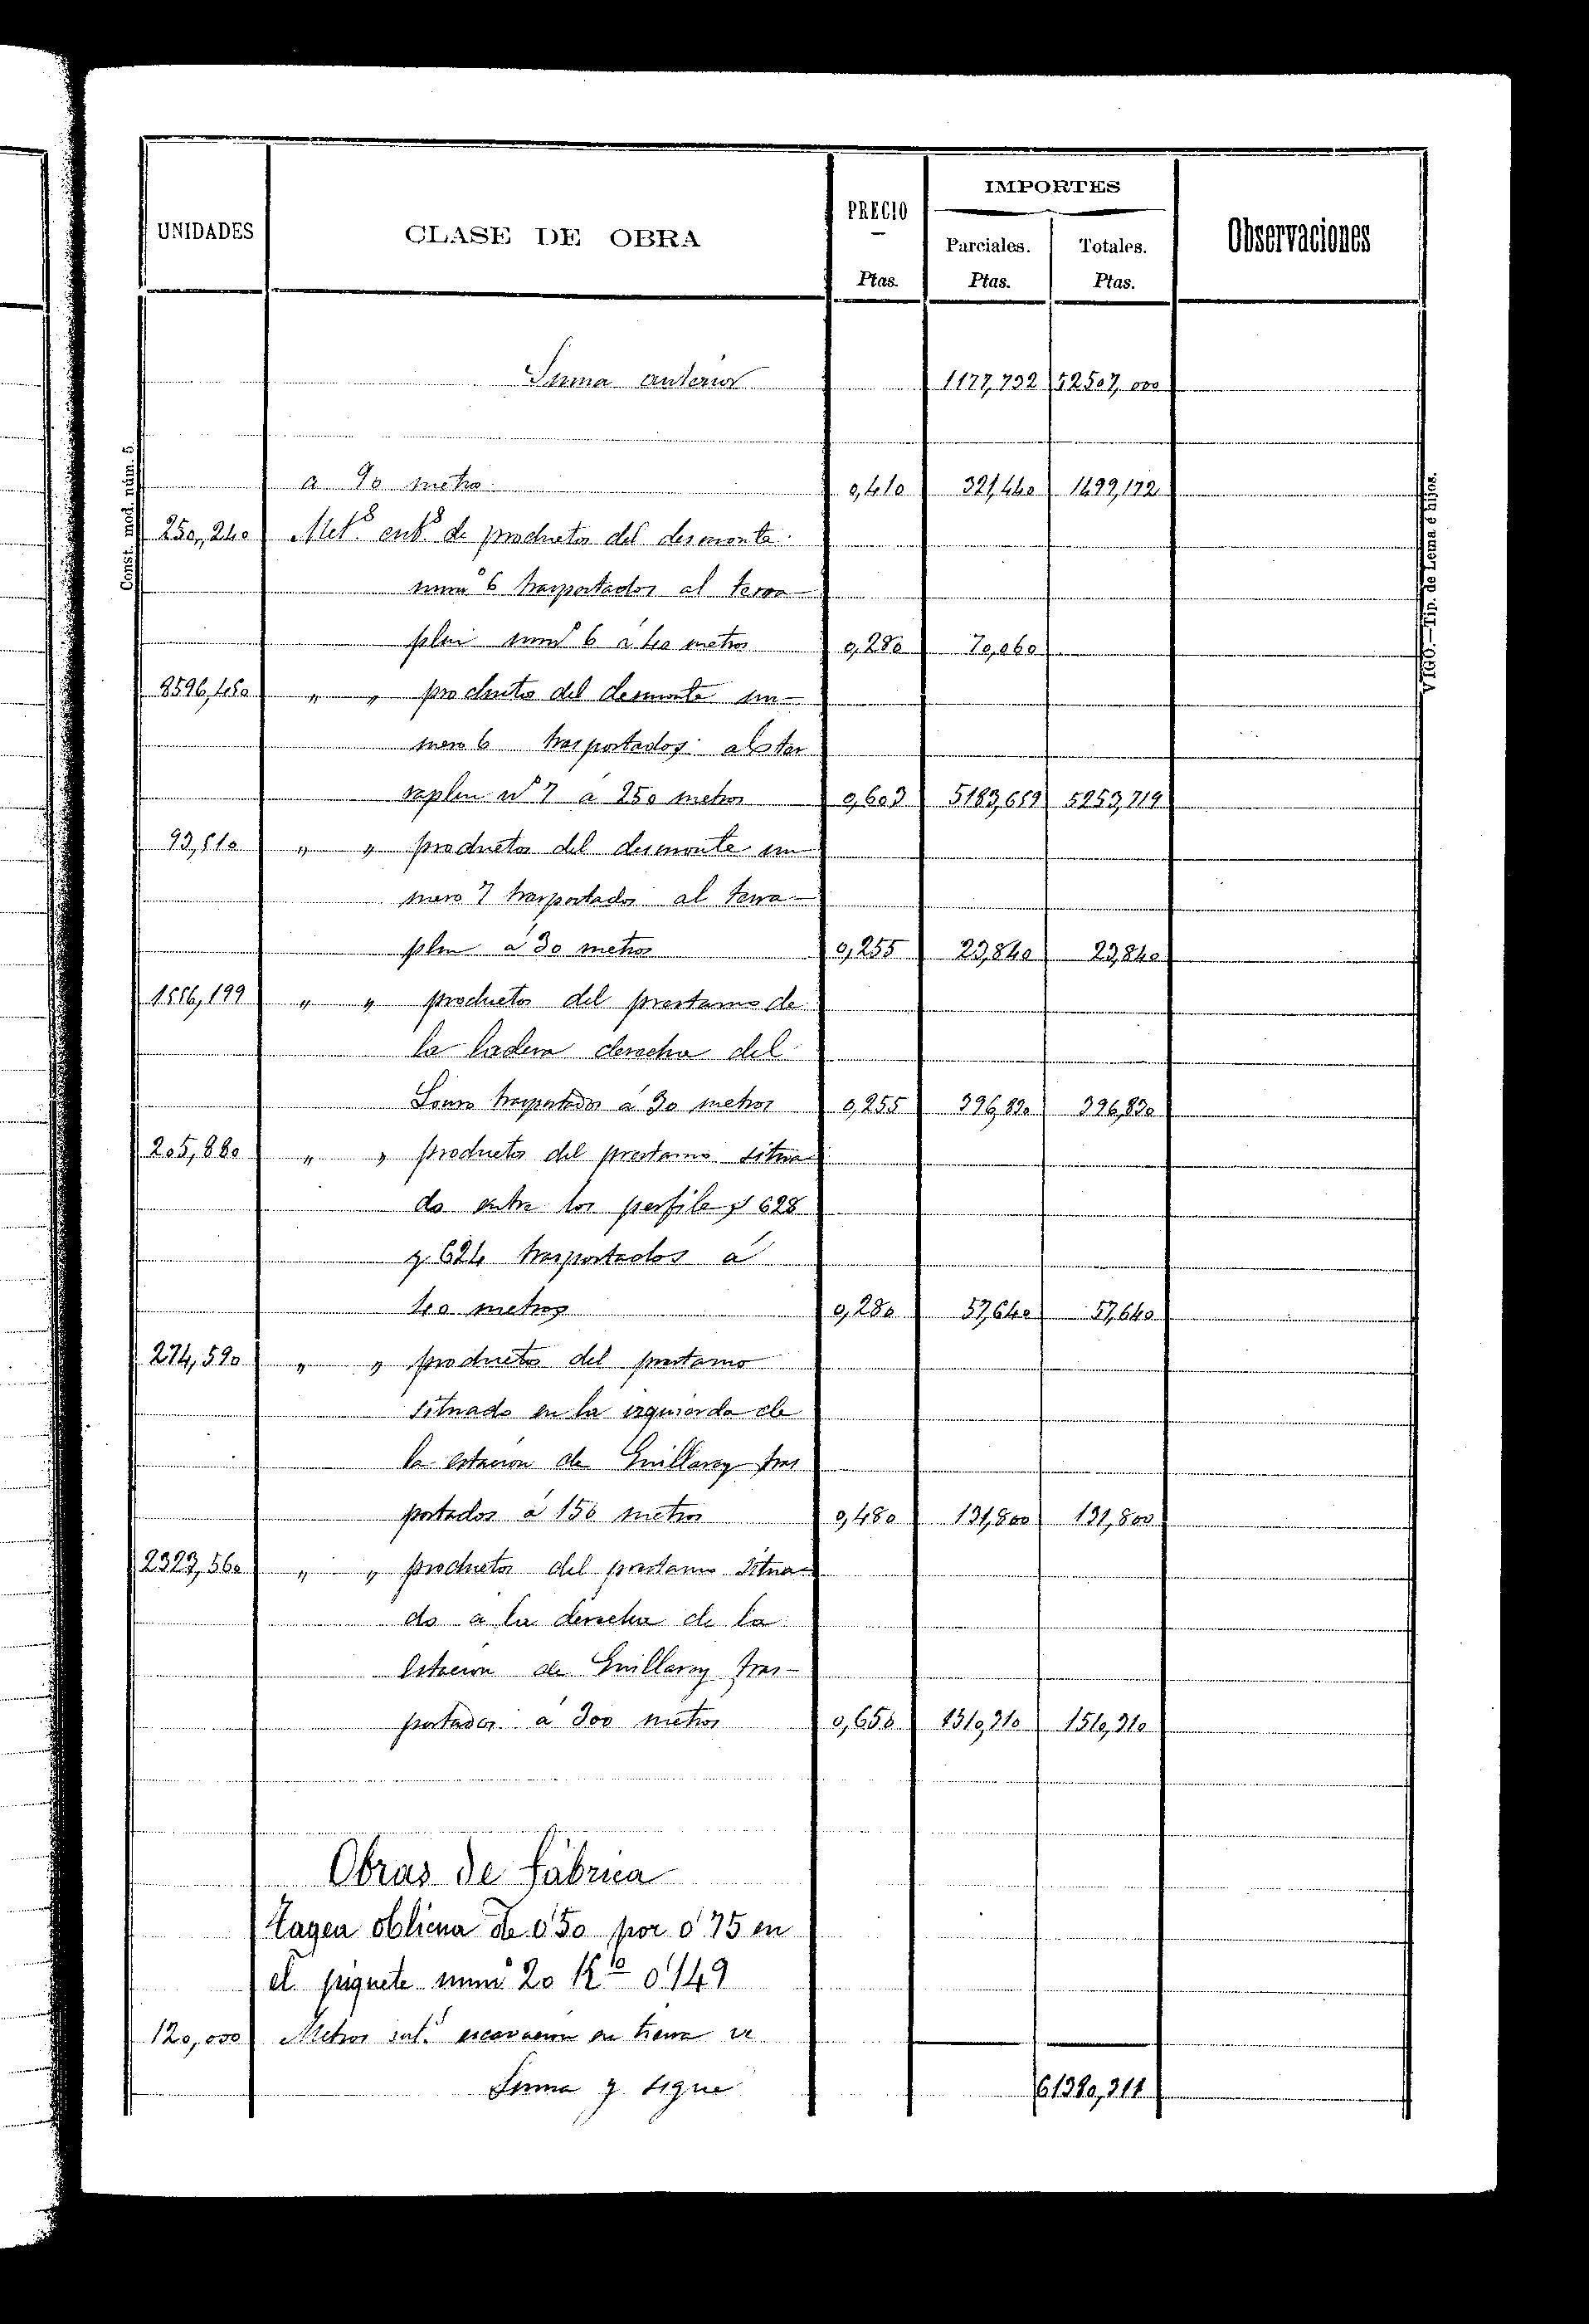 UNIDADES CLASE DE OBRA PRECIO IMPORTES Observaciones
Ptas. Parciales. Ptas. Totales. Ptas.
Suma anterior 1177,732 52507,000
a 90 metros 0,410 321,440 1499,172
250,240 Met.s cub.s de productos del desmonte
num.o 6 trasportados al terra-
plen num.o 6 á 40 metros 0,280 70,060
8596,450 " " productos del desmonte nu-
mero 6 trasportados al ter
raplen n.o 7 á 250 metros 0,603 5183,659 5253,719
93,510 " " productos del desmonte nu
mero 7 trasportados al terra-
plen á 30 metros 0,255 23,840 23,840
1556,199 " " productos del prestamo de
la ladera derecha del
Louro trasportados á 30 metros 0,255 396,830 396,830
205,880 " " productos del prestamo situa-
do entre los perfiles 628
y 624 trasportados á
40 metros 0,280 57,640 57,640
274,590 " " productos del prestamo
situado en la izquierda de
la estacion de Guillarey tras
portados á 150 metros 0,480 131,800 131,800
2323,560 " " productos del prestamo situa-
do a la derecha de la
estacion de Guillarey tras-
portados á 300 metros 0,650 1510,310 1510,310
Obras de fábrica
Tagea oblicua de 0'50 por 0'75 en
el piquete num.o 20 K.o 0'149
120,000 Metros cub.s escavacion en tierra
Suma y sigue 61380,311
Const. mod. núm. 5.
VIGO.—Tip. de Lema é hijos.